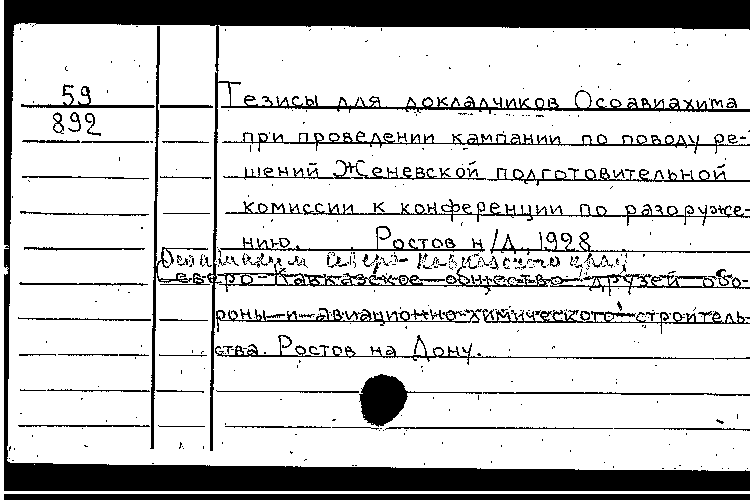 59
892
Тезисы для докладчиков Осоавиахима
при проведении кампании по поводу ре-
шений Женевской подготовительной
комиссии к конференции по разоруже-
нию. Ростов н/Д., 1928
Осоавиахим Северо-Кавказского края
Северо-Кавказское общество друзей обо-
роны и авиационно-химического строитель-
ства. Ростов на Дону.